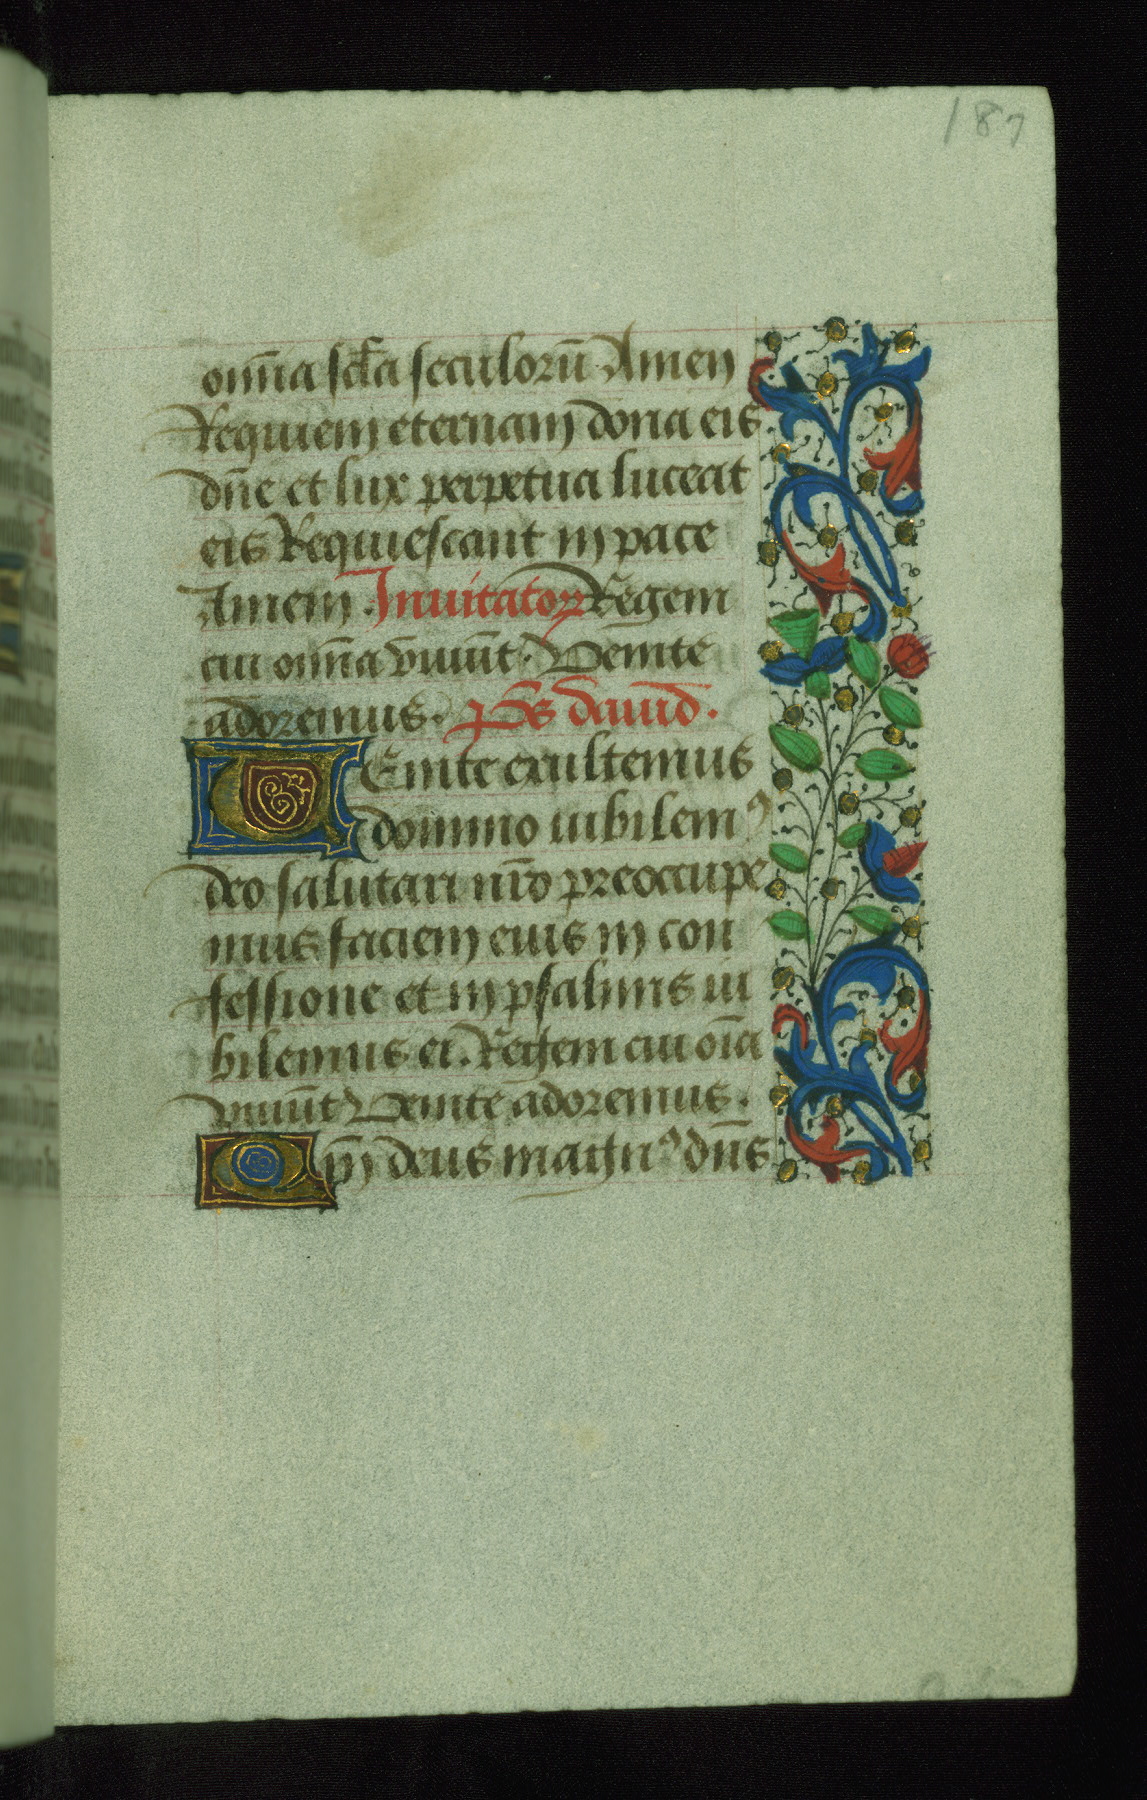 187
om̄ia scl̄a seculorū Amen
Requiem eternam dona eis
dn̄e et lux perpetua luceat
eis Requiescant in pace
Amem. Inuitator Regem
cui om̄ia viuūt. Venite
adoremus. ps dauid.
Venite exultemus
domino iubilemꝰ
deo salutari nr̄o preoccupe
mus faciem eius in con
fessione et in psalmis iu
bilemus ei. Regem cui oīa
viuūt Venite adoremus.
Qm̄ deus magnꝰ dn̄s